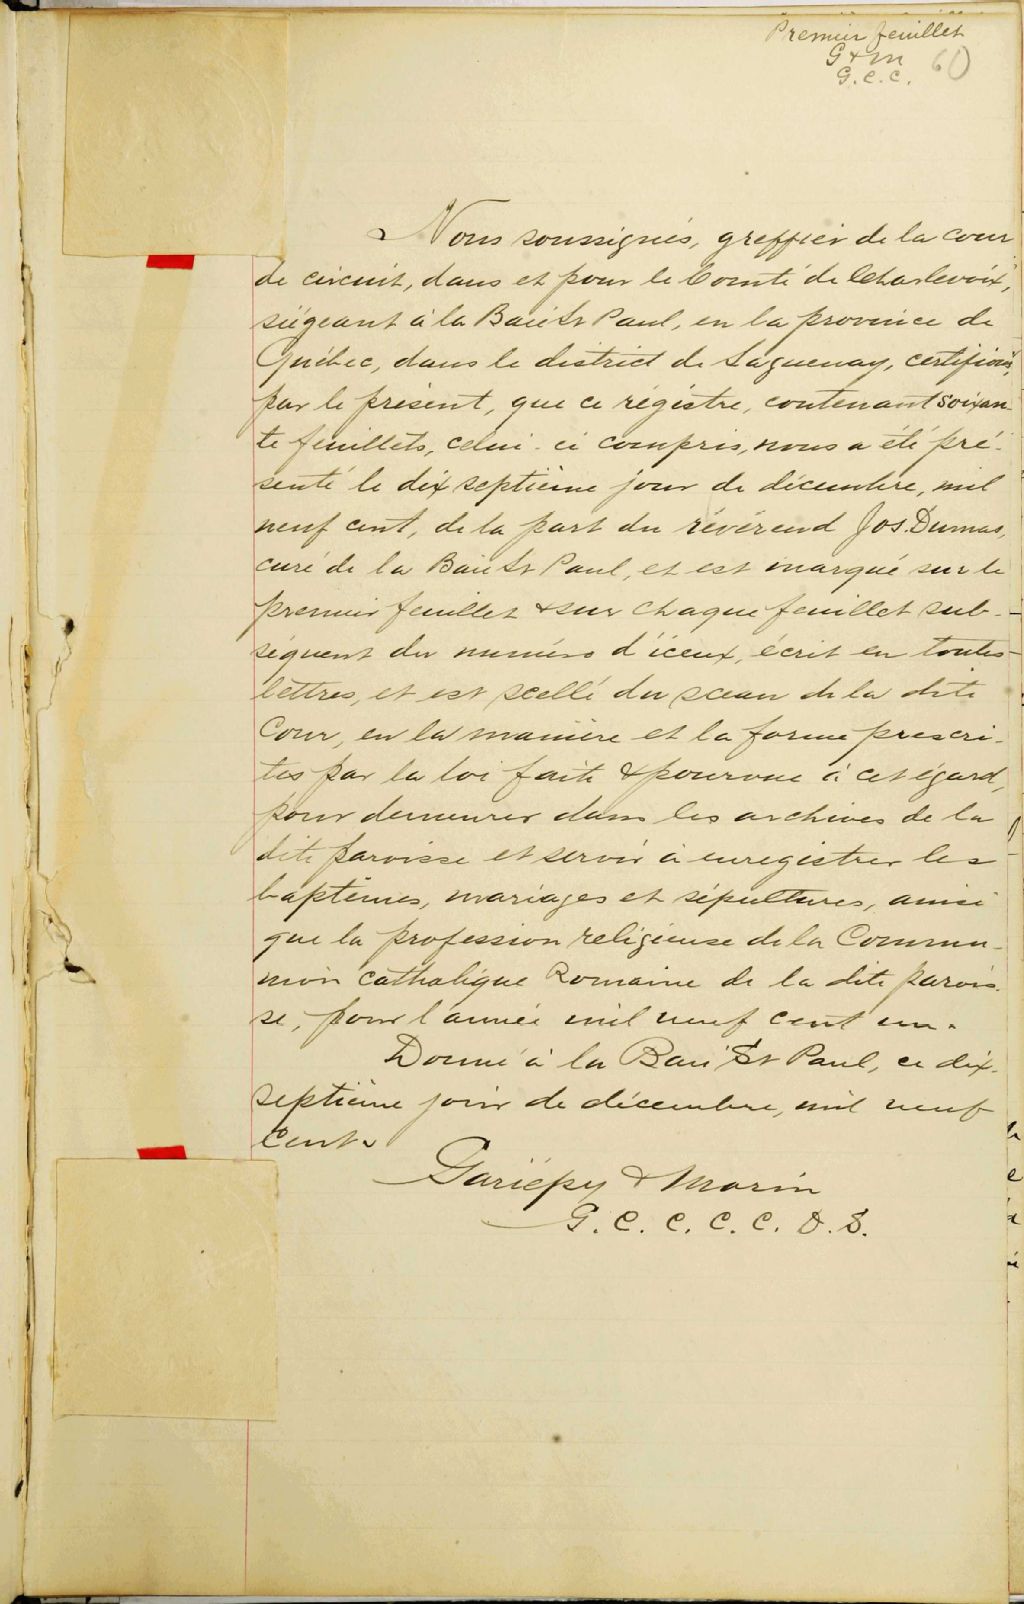 Premier feuillet
G & M
G. C. C.
60
Nous soussignés, greffier de la cour
de circuit, dans et pour le Comté de Charlevoix,
siégeant à la Baie St Paul, en la province de
Québec, dans le district de Saguenay, certifions,
par le présent, que ce régistre, contenant soixan-
te feuillets, celui-ci compris, nous a été pré-
senté le dix septième jour de décembre, mil
neuf cent, de la part du révérend Jos. Dumas,
curé de la Baie St Paul, et est marqué sur le
premier feuillet & sur chaque feuillet sub-
séquent du numéro d'iceux, écrit en toutes
lettres, et est scellé du sceau de la dite
Cour, en la manière et la forme prescri-
tes par la loi faite & pourvue à cet égard,
pour demeurer dans les archives de la
dite paroisse et servir à enregistrer les
baptêmes, mariages et sépultures, ainsi
que la profession religieuse de la Commu-
nion Catholique Romaine de la dite parois-
se, pour l'année mil neuf cent un.
Donné à la Baie St Paul, ce dix-
septième jour de décembre, mil neuf
cent.
Gariépy & Morin
G. C. C. C. C. D. S.